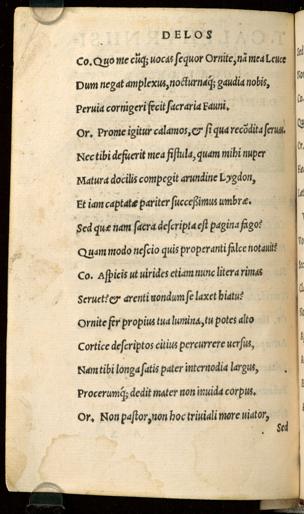 DELOS
Co. Quo me cũq; uocas sequor Ornite, nã mea Leuce
Dum negat amplexus, nocturnaq́; gaudia nobis,
Peruia cornigeri fecit sacraria Fauni.
Or. Prome igitur calamos, & si qua recõdita seruas.
Nec tibi defuerit mea fistula, quam mihi nuper
Matura docilis compegit arundine Lygdon,
Et iam captatæ pariter successimus umbræ.
Sed quæ nam sacra descripta est pagina fago?
Quam modo nescio quis properanti falce notauit?
Co. Aspicis ut uirides etiam nunc litera rimas
Seruet? & arenti nondum se laxet hiatu?
Ornite fer propius tua lumina, tu potes alto
Cortice descriptos citius percurrere uersus,
Nam tibi longa satis pater internodia largus,
Procerumq́; dedit mater non inuida corpus.
Or. Non pastor, non hoc triuiali more uiator,
Sed